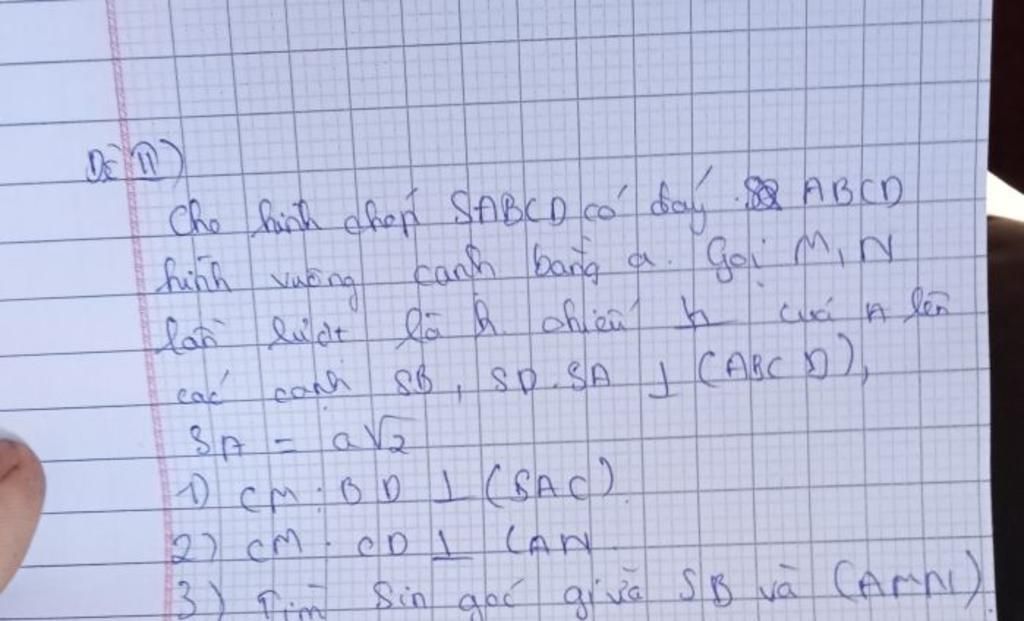 Đề II)
Cho hình chóp SABCD có đáy ABCD
hình vuông cạnh bằng a. Gọi M, N
lần lượt là h chiếu h của A lên
các cạnh SB, SD. SA ⊥ (ABCD),
SA = a√2
1) CM: BD ⊥ (SAC).
2) CM: CD ⊥ (AN
3) Tìm sin góc giữa SB và (AMN)